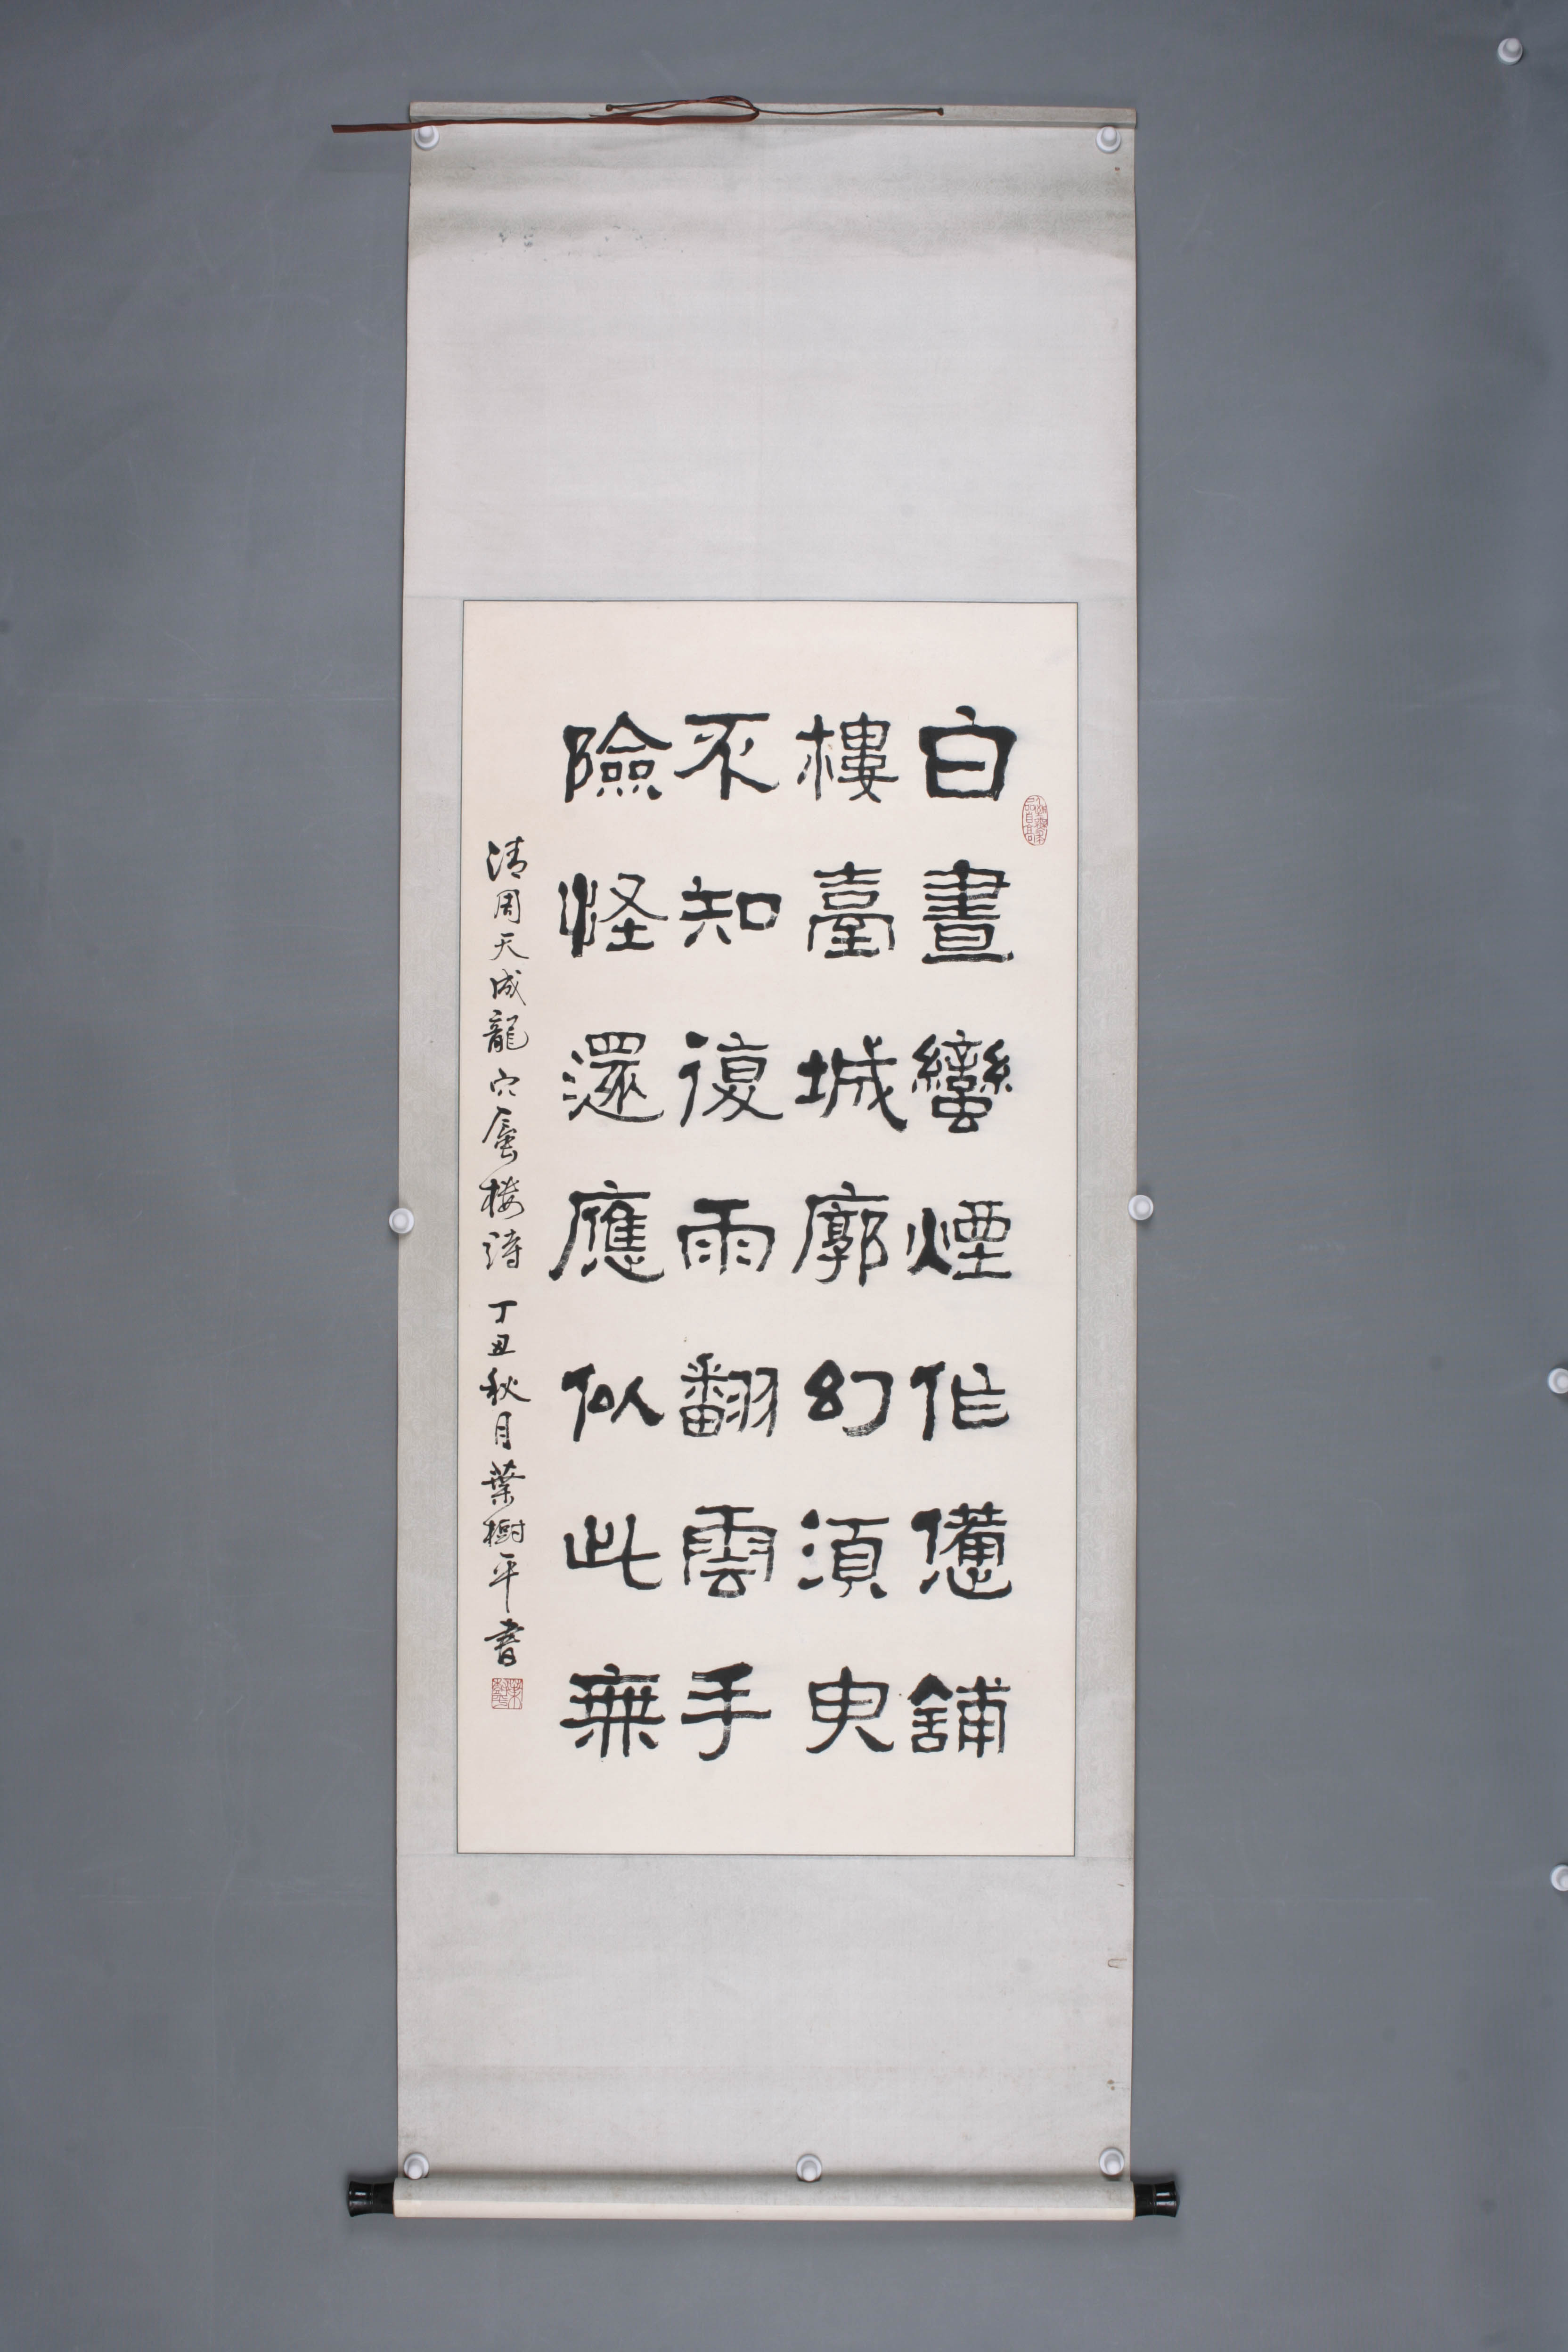 白晝蠻煙作憊鋪
樓臺城廓幻須臾
不知復雨翻雲手
險怪還應似此無
清周天成龍穴蜃楼詩 丁丑秋月葉樹平書